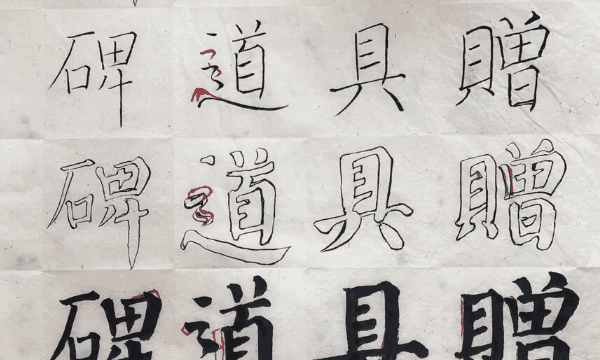 碑道具贈
碑道具贈
碑道具贈